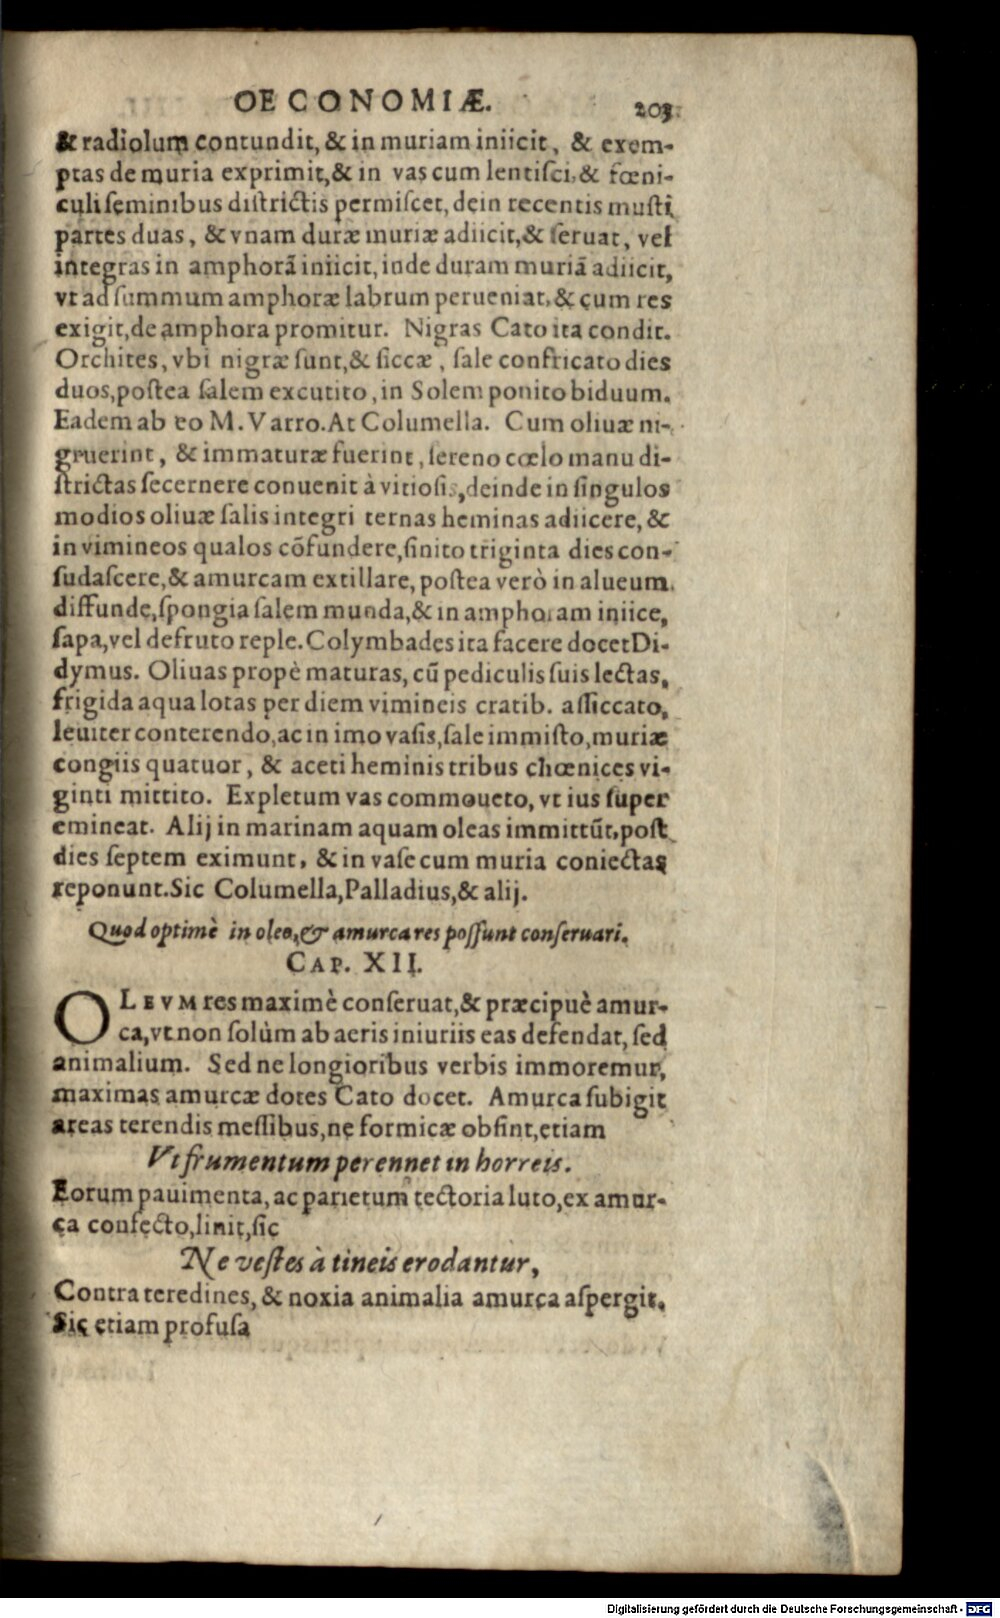 OECONOMIÆ. 203
& radiolum contundit, & in muriam iniicit, & exem-
ptas de muria exprimit, & in vas cum lentisci, & fœni-
culi seminibus districtis permiscet, dein recentis musti
partes duas, & vnam duræ muriæ adiicit, & seruat, vel
integras in amphorā iniicit, inde duram muriā adiicit,
vt ad summum amphoræ labrum perueniat, & cum res
exigit, de amphora promitur. Nigras Cato ita condit.
Orchites, vbi nigræ sunt, & siccæ, sale confricato dies
duos, postea salem excutito, in Solem ponito biduum.
Eadem ab eo M. Varro. At Columella. Cum oliuæ ni-
gruerint, & immaturæ fuerint, sereno cœlo manu di-
strictas secernere conuenit à vitiosis, deinde in singulos
modios oliuæ salis integri ternas heminas adiicere, &
in vimineos qualos cōfundere, sinito triginta dies con-
sudascere, & amurcam extillare, postea verò in alueum
diffunde, spongia salem munda, & in amphoram iniice,
sapa, vel defruto reple. Colymbades ita facere docet Di-
dymus. Oliuas propè maturas, cū pediculis suis lectas,
frigida aqua lotas per diem vimineis cratib. assiccato,
leuiter conterendo, ac in imo vasis, sale immisto, muriæ
congiis quatuor, & aceti heminis tribus chœnices vi-
ginti mittito. Expletum vas commoueto, vt ius super
emineat. Alij in marinam aquam oleas immittūt, post
dies septem eximunt, & in vase cum muria coniectas
reponunt. Sic Columella, Palladius, & alij.
Quod optimè in oleo, & amurca res possunt conseruari.
CAP. XII.
OLEVM res maximè conseruat, & præcipuè amur-
ca, vt non solùm ab aeris iniuriis eas defendat, sed
animalium. Sed ne longioribus verbis immoremur,
maximas amurcæ dotes Cato docet. Amurca subigit
areas terendis messibus, ne formicæ obsint, etiam
Vt frumentum perennet in horreis.
Eorum pauimenta, ac parietum tectoria luto, ex amur-
ca confecto, linit, sic
Ne vestes à tineis erodantur,
Contra teredines, & noxia animalia amurca aspergit.
Sic etiam profusa
Digitalisierung gefördert durch die Deutsche Forschungsgemeinschaft - DFG